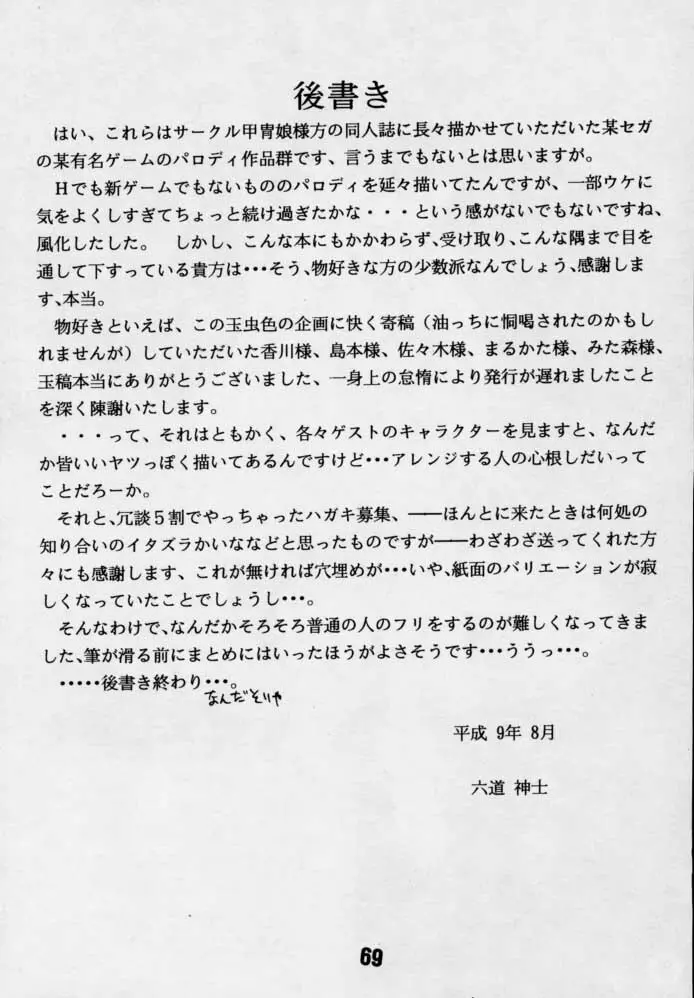 後書き
はい、これらはサークル甲冑娘様方の同人誌に長々描かせていただいた某セガ
の某有名ゲームのパロディ作品群です、言うまでもないとは思いますが。
Hでも新ゲームでもないもののパロディを延々描いてたんですが、一部ウケに
気をよくしすぎてちょっと続け過ぎたかな・・・という感がないでもないですね、
風化したした。 しかし、こんな本にもかかわらず、受け取り、こんな隅まで目を
通して下すっている貴方は・・・そう、物好きな方の少数派なんでしょう、感謝しま
す、本当。
物好きといえば、この玉虫色の企画に快く寄稿（油っちに恫喝されたのかもし
れませんが）していただいた香川様、島本様、佐々木様、まるかた様、みた森様、
玉稿本当にありがとうございました、一身上の怠惰により発行が遅れましたこと
を深く陳謝いたします。
・・・って、それはともかく、各々ゲストのキャラクターを見ますと、なんだ
か皆いいヤツっぽく描いてあるんですけど・・・アレンジする人の心根しだいって
ことだろーか。
それと、冗談５割でやっちゃったハガキ募集、――ほんとに来たときは何処の
知り合いのイタズラかいななどと思ったものですが――わざわざ送ってくれた方
々にも感謝します、これが無ければ穴埋めが・・・いや、紙面のバリエーションが寂
しくなっていたことでしょうし・・・。
そんなわけで、なんだかそろそろ普通の人のフリをするのが難しくなってきま
した、筆が滑る前にまとめにはいったほうがよさそうです・・・ううっ・・・。
・・・・・後書き終わり・・・。
なんだそりゃ
平成 9年 8月
六道 神士
69